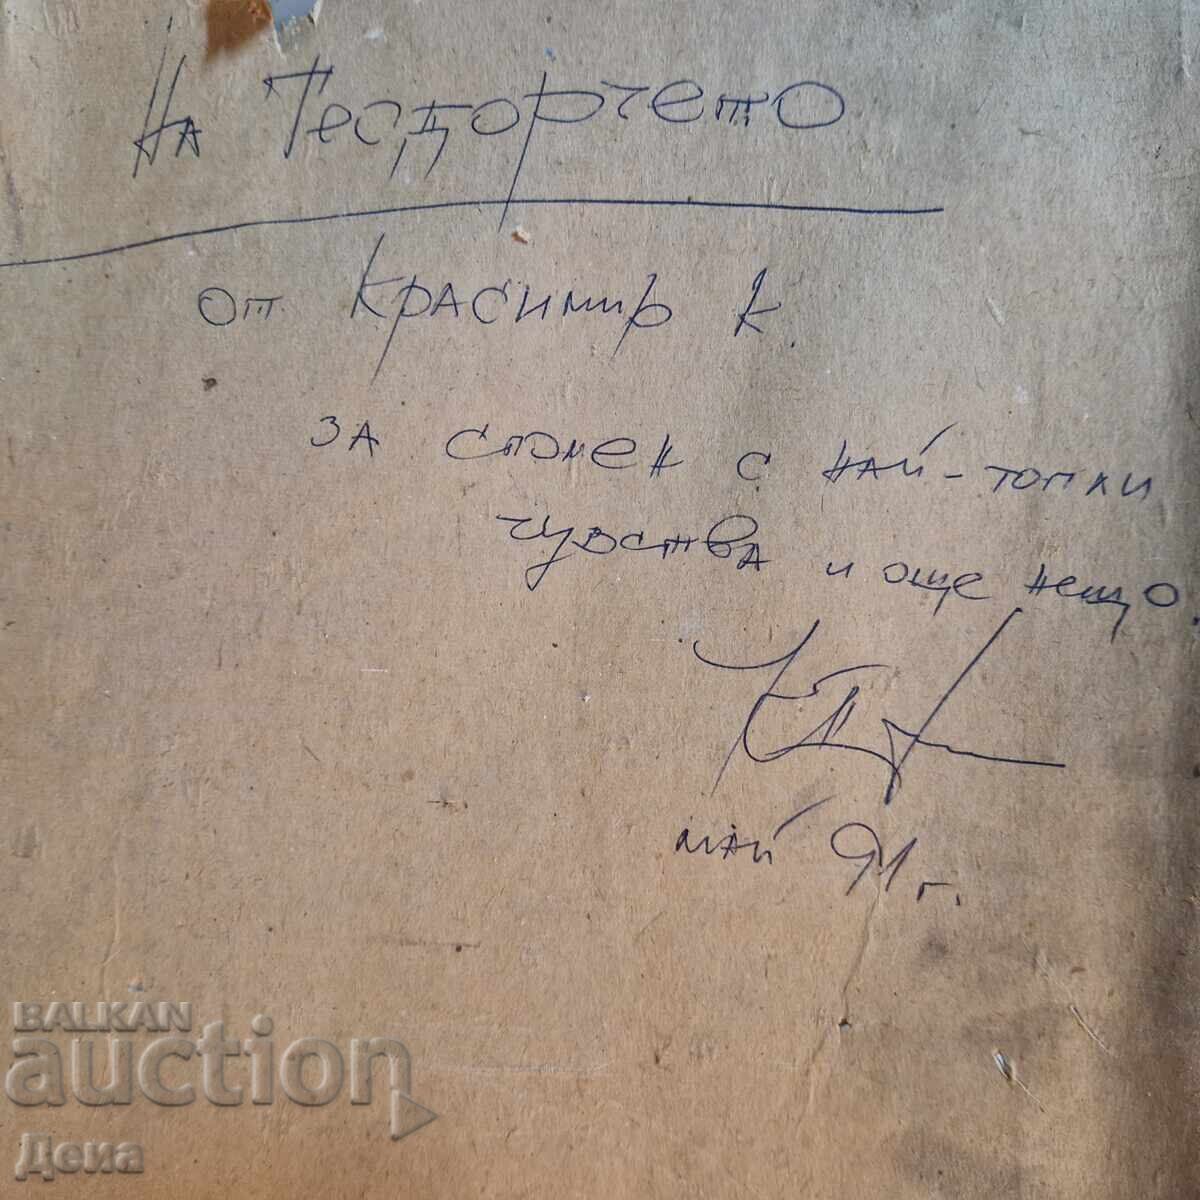 На Теодорчето
от Красимир К.
за спомен с най-топли
чувства и още нещо.
май 91 г.
BALKAN
auction
Дена